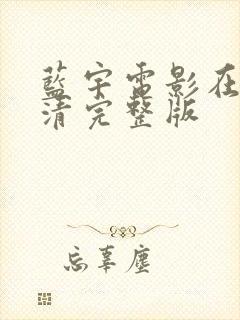 藍宇電影在
清完整版
忘辜塵